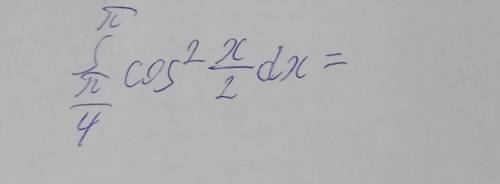 ∫_{π/4}^{π} cos² x/2 dx =